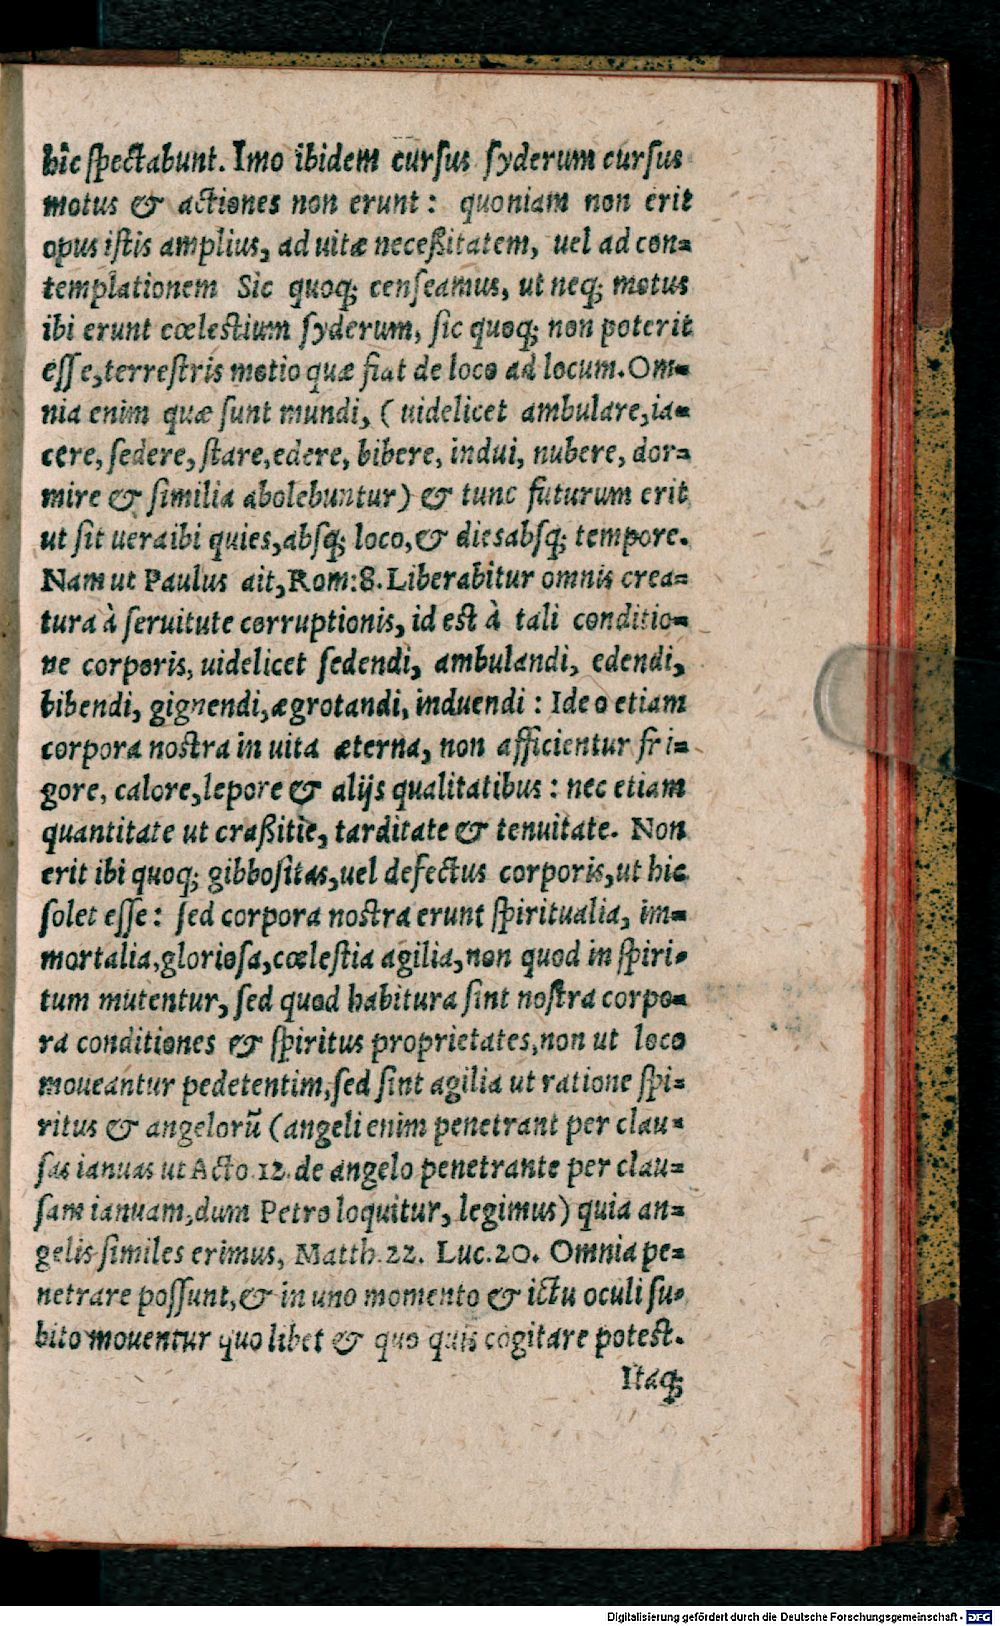 hîc spectabunt. Imo ibidem cursus syderum cursus
motus & actiones non erunt: quoniam non erit
opus istis amplius, ad uitæ neceßitatem, uel ad con-
templationem Sic quoq; censeamus, ut neq; motus
ibi erunt cœlestium syderum, sic quoq; non poterit
esse, terrestris motio quæ fiat de loco ad locum. Om-
nia enim quæ sunt mundi, (uidelicet ambulare, ia-
cere, sedere, stare, edere, bibere, indui, nubere, dor-
mire & similia abolebuntur) & tunc futurum erit
ut sit uera ibi quies, absq; loco, & dies absq; tempore.
Nam ut Paulus ait, Rom: 8. Liberabitur omnis crea-
tura à seruitute corruptionis, id est à tali conditio-
ne corporis, uidelicet sedendi, ambulandi, edendi,
bibendi, gignendi, ægrotandi, induendi: Ideo etiam
corpora nostra in uita æterna, non afficientur fri-
gore, calore, lepore & alijs qualitatibus: nec etiam
quantitate ut craßitie, tarditate & tenuitate. Non
erit ibi quoq; gibbositas, uel defectus corporis, ut hic
solet esse: sed corpora nostra erunt spiritualia, im-
mortalia, gloriosa, cœlestia agilia, non quod in spiri-
tum mutentur, sed quod habitura sint nostra corpo-
ra conditiones & spiritus proprietates, non ut loco
moueantur pedetentim, sed sint agilia ut ratione spi-
ritus & angelorũ (angeli enim penetrant per clau-
sas ianuas ut Acto 12. de angelo penetrante per clau-
sam ianuam, dum Petro loquitur, legimus) quia an-
gelis similes erimus, Matth. 22. Luc. 20. Omnia pe-
netrare possunt, & in uno momento & ictu oculi su-
bito mouentur quo libet & quo quis cogitare potest.
Itaq;
Digitalisierung gefördert durch die Deutsche Forschungsgemeinschaft - DFG